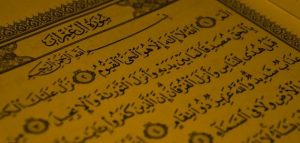 سُورَةُ آلِ عِمْرَانَ
بِسْمِ ٱللَّهِ ٱلرَّحْمَٰنِ ٱلرَّحِيمِ
ٱللَّهُ لَآ إِلَٰهَ إِلَّا هُوَ ٱلْحَىُّ ٱلْقَيُّومُ ۝ نَزَّلَ عَلَيْكَ ٱلْكِتَٰبَ
مُصَدِّقًا لِّمَا بَيْنَ يَدَيْهِ وَأَنزَلَ ٱلتَّوْرَىٰةَ وَٱلْإِنجِيلَ
هُدًى لِّلنَّاسِ وَأَنزَلَ ٱلْفُرْقَانَ إِنَّ ٱلَّذِينَ كَفَرُوا۟
شَدِيدٌ وَٱللَّهُ عَزِيزٌ ذُو ٱنتِقَامٍ
ٱلْأَرْضِ وَلَا فِى ٱلسَّمَآءِ